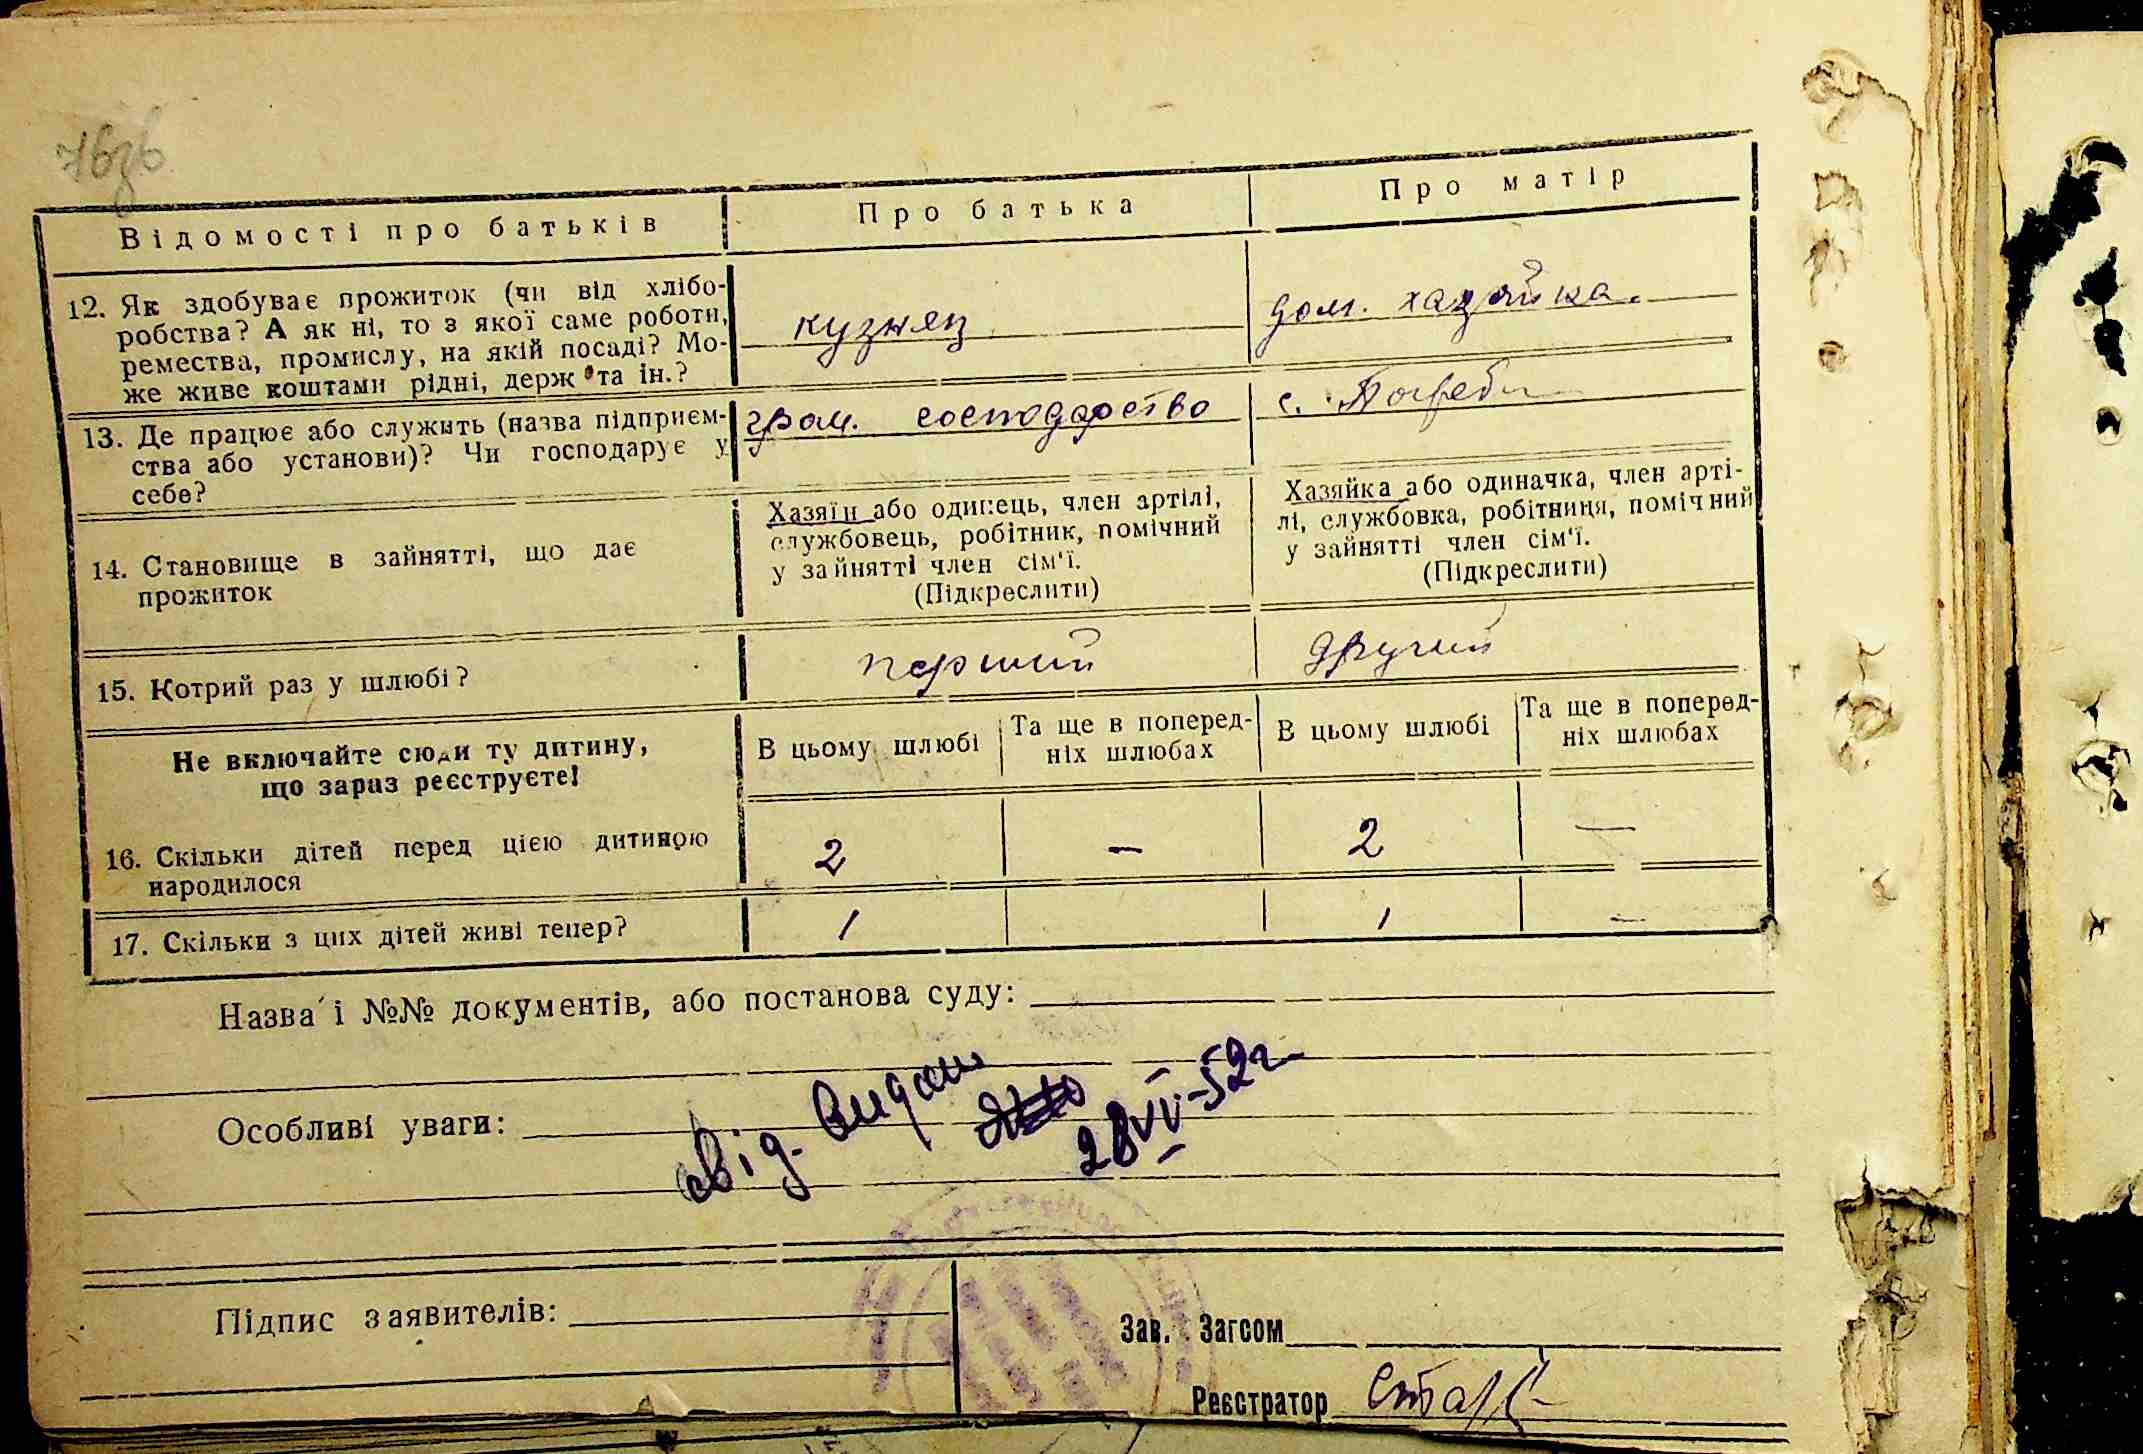 Відомості про батьків
Про батька
Про матір
12. Як здобуває прожиток (чи від хлібо-
робства? А як ні, то з якої саме роботи,
ремества, промислу, на якій посаді? Мо-
же живе коштами рідні, держ та ін.?
кузнец
дом. хазяйка.
13. Де працює або служить (назва підприєм-
ства або установи)? Чи господарує у
себе?
гром. господарство
с. Погреби
14. Становище в зайнятті, що дає
прожиток
Хазяїн або одинець, член артілі,
службовець, робітник, помічний
у зайнятті член сім'ї.
(Підкреслити)
Хазяйка або одиначка, член арті-
лі, службовка, робітниця, помічний
у зайнятті член сім'ї.
(Підкреслити)
15. Котрий раз у шлюбі?
перший
другий
Не включайте сюди ту дитину,
що зараз реєструєте!
В цьому шлюбі
Та ще в поперед-
ніх шлюбах
В цьому шлюбі
Та ще в поперед-
ніх шлюбах
16. Скільки дітей перед цією дитиною
народилося
2 — 2 —
17. Скільки з цих дітей живі тепер?
1 1 —
Назва і №№ документів, або постанова суду:
Особливі уваги:
свід. видан
28 VI-52г
Підпис заявителів:
Зав. Загсом
Реєстратор